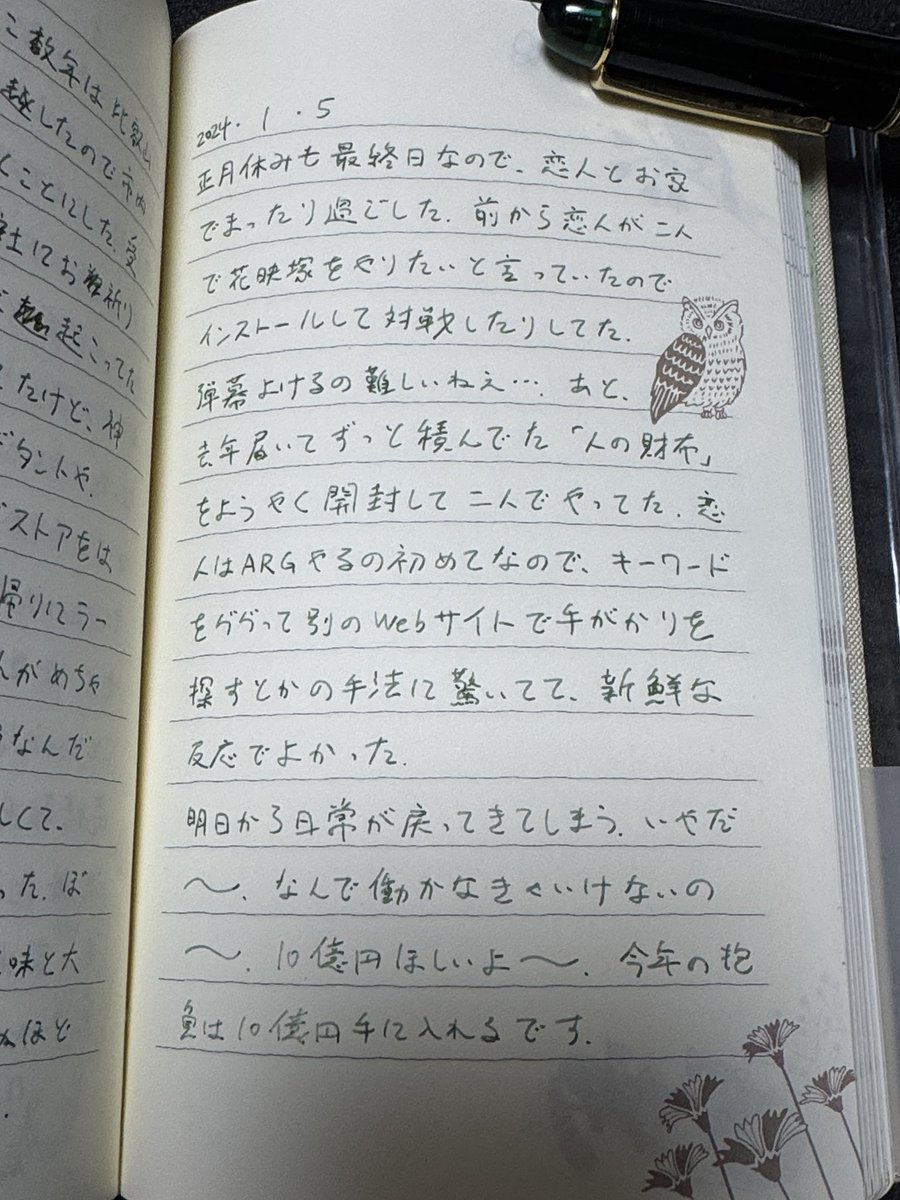 こ数年は比叡山
越したので市内
くことにした。受
社にお祈り
起こってた
たけど、神
ダントや、
ストアをは
帰りにラー
んがめちゃ
なんだ
しくて、
った。ぼ
味と大
ほど
2024.1.5
正月休みも最終日なので、恋人とお家
でまったり過ごした。前から恋人が二人
で花映塚をやりたいと言っていたので
インストールして対戦したりしてた。
弾幕よけるの難しいねえ…。あと、
去年届いてずっと積んでた「人の財布」
をようやく開封して二人でやってた。恋
人はARGやるの初めてなので、キーワード
をググって別のWebサイトで手がかりを
探すとかの手法に驚いてて、新鮮な
反応でよかった。
明日から日常が戻ってきてしまう。いやだ
〜。なんで働かなきゃいけないの
〜。10億円ほしいよ〜。今年の抱
負は10億円手に入れるです。